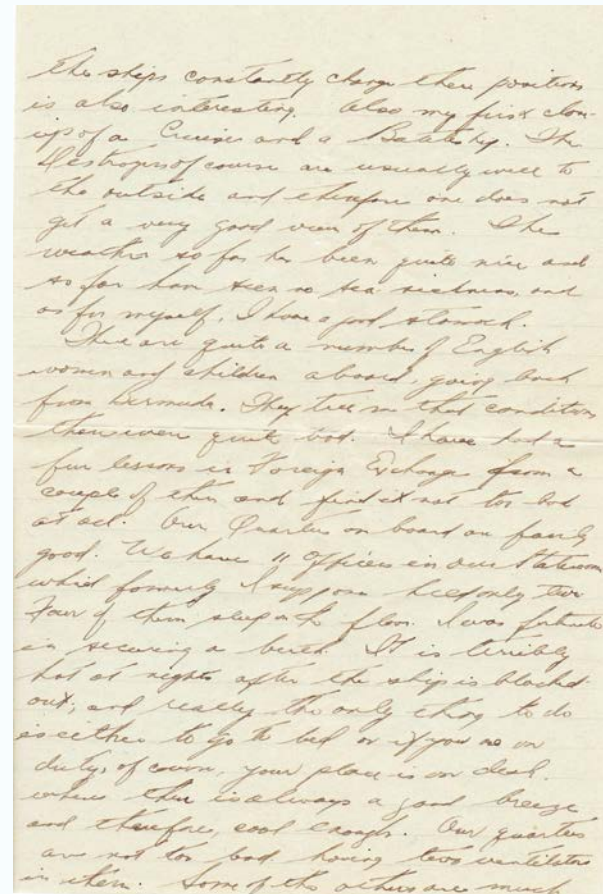 the ships constantly change their positions
is also interesting. Also my first close
up of a Cruiser and a Battleship. The
Destroyers of course are usually well to
the outside and therefore one does not
get a very good view of them. The
weather so far has been quite nice and
so far have seen no sea sickness, and
as for myself, I have a good stomach.
There are quite a number of English
women and children aboard, going back
from Bermuda. They tell me that conditions
there were quite bad. I have had a
few lessons in Foreign Exchange from a
couple of them and find it not too bad
at all. Our Quarters on board are fairly
good. We have 11 Officers in our Stateroom
which formerly I suppose held only two
Four of them sleep on the floor. I was fortunate
in securing a berth. It is terribly
hot at nights after the ship is blacked
out, and really the only thing to do
is either to go to bed or if you are on
duty, of course, your place is on deck.
where there is always a good breeze
and therefore, cool enough. Our quarters
are not too bad having two ventilators
in them. Some of the others are much